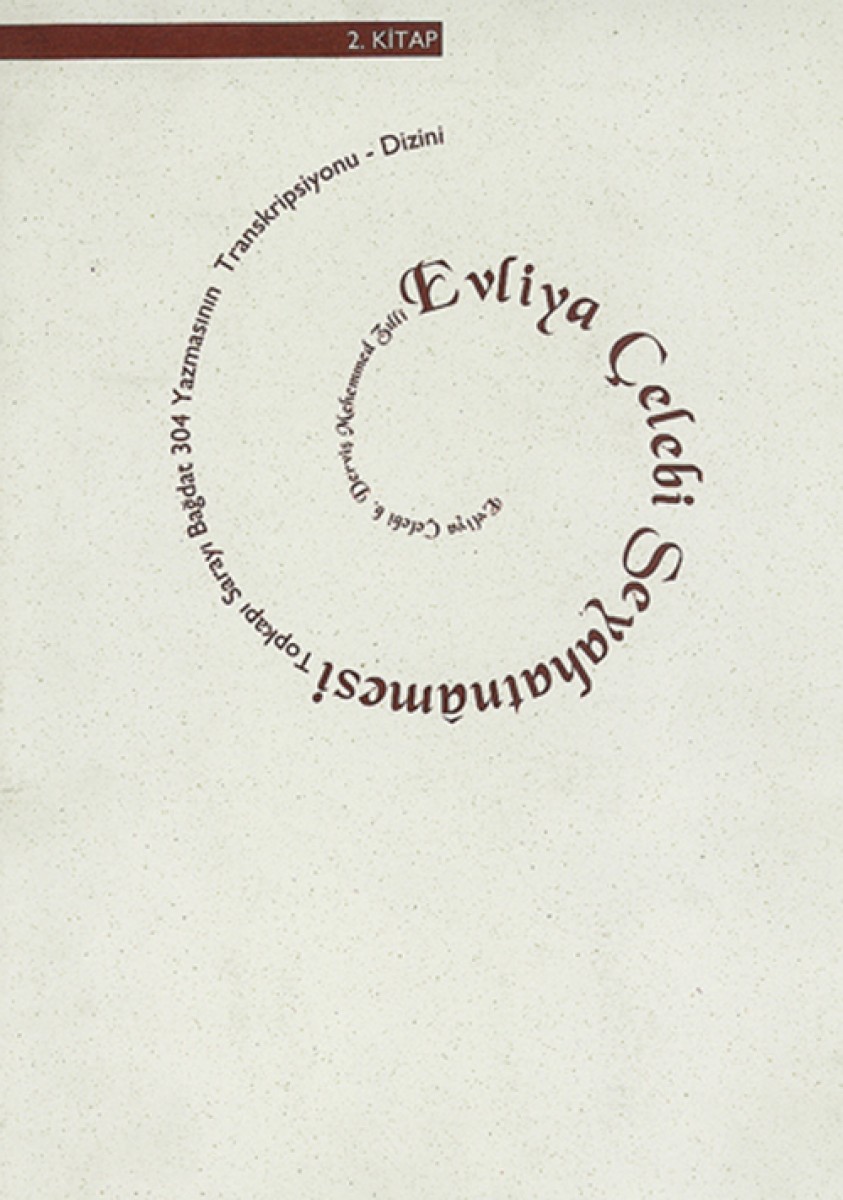 2. KİTAP
Evliya Çelebi b. Derviş Mehemmed Zıllî
Evliya Çelebi Seyahatnâmesi
Topkapı Sarayı Bağdat 304 Yazmasının Transkripsiyonu - Dizini